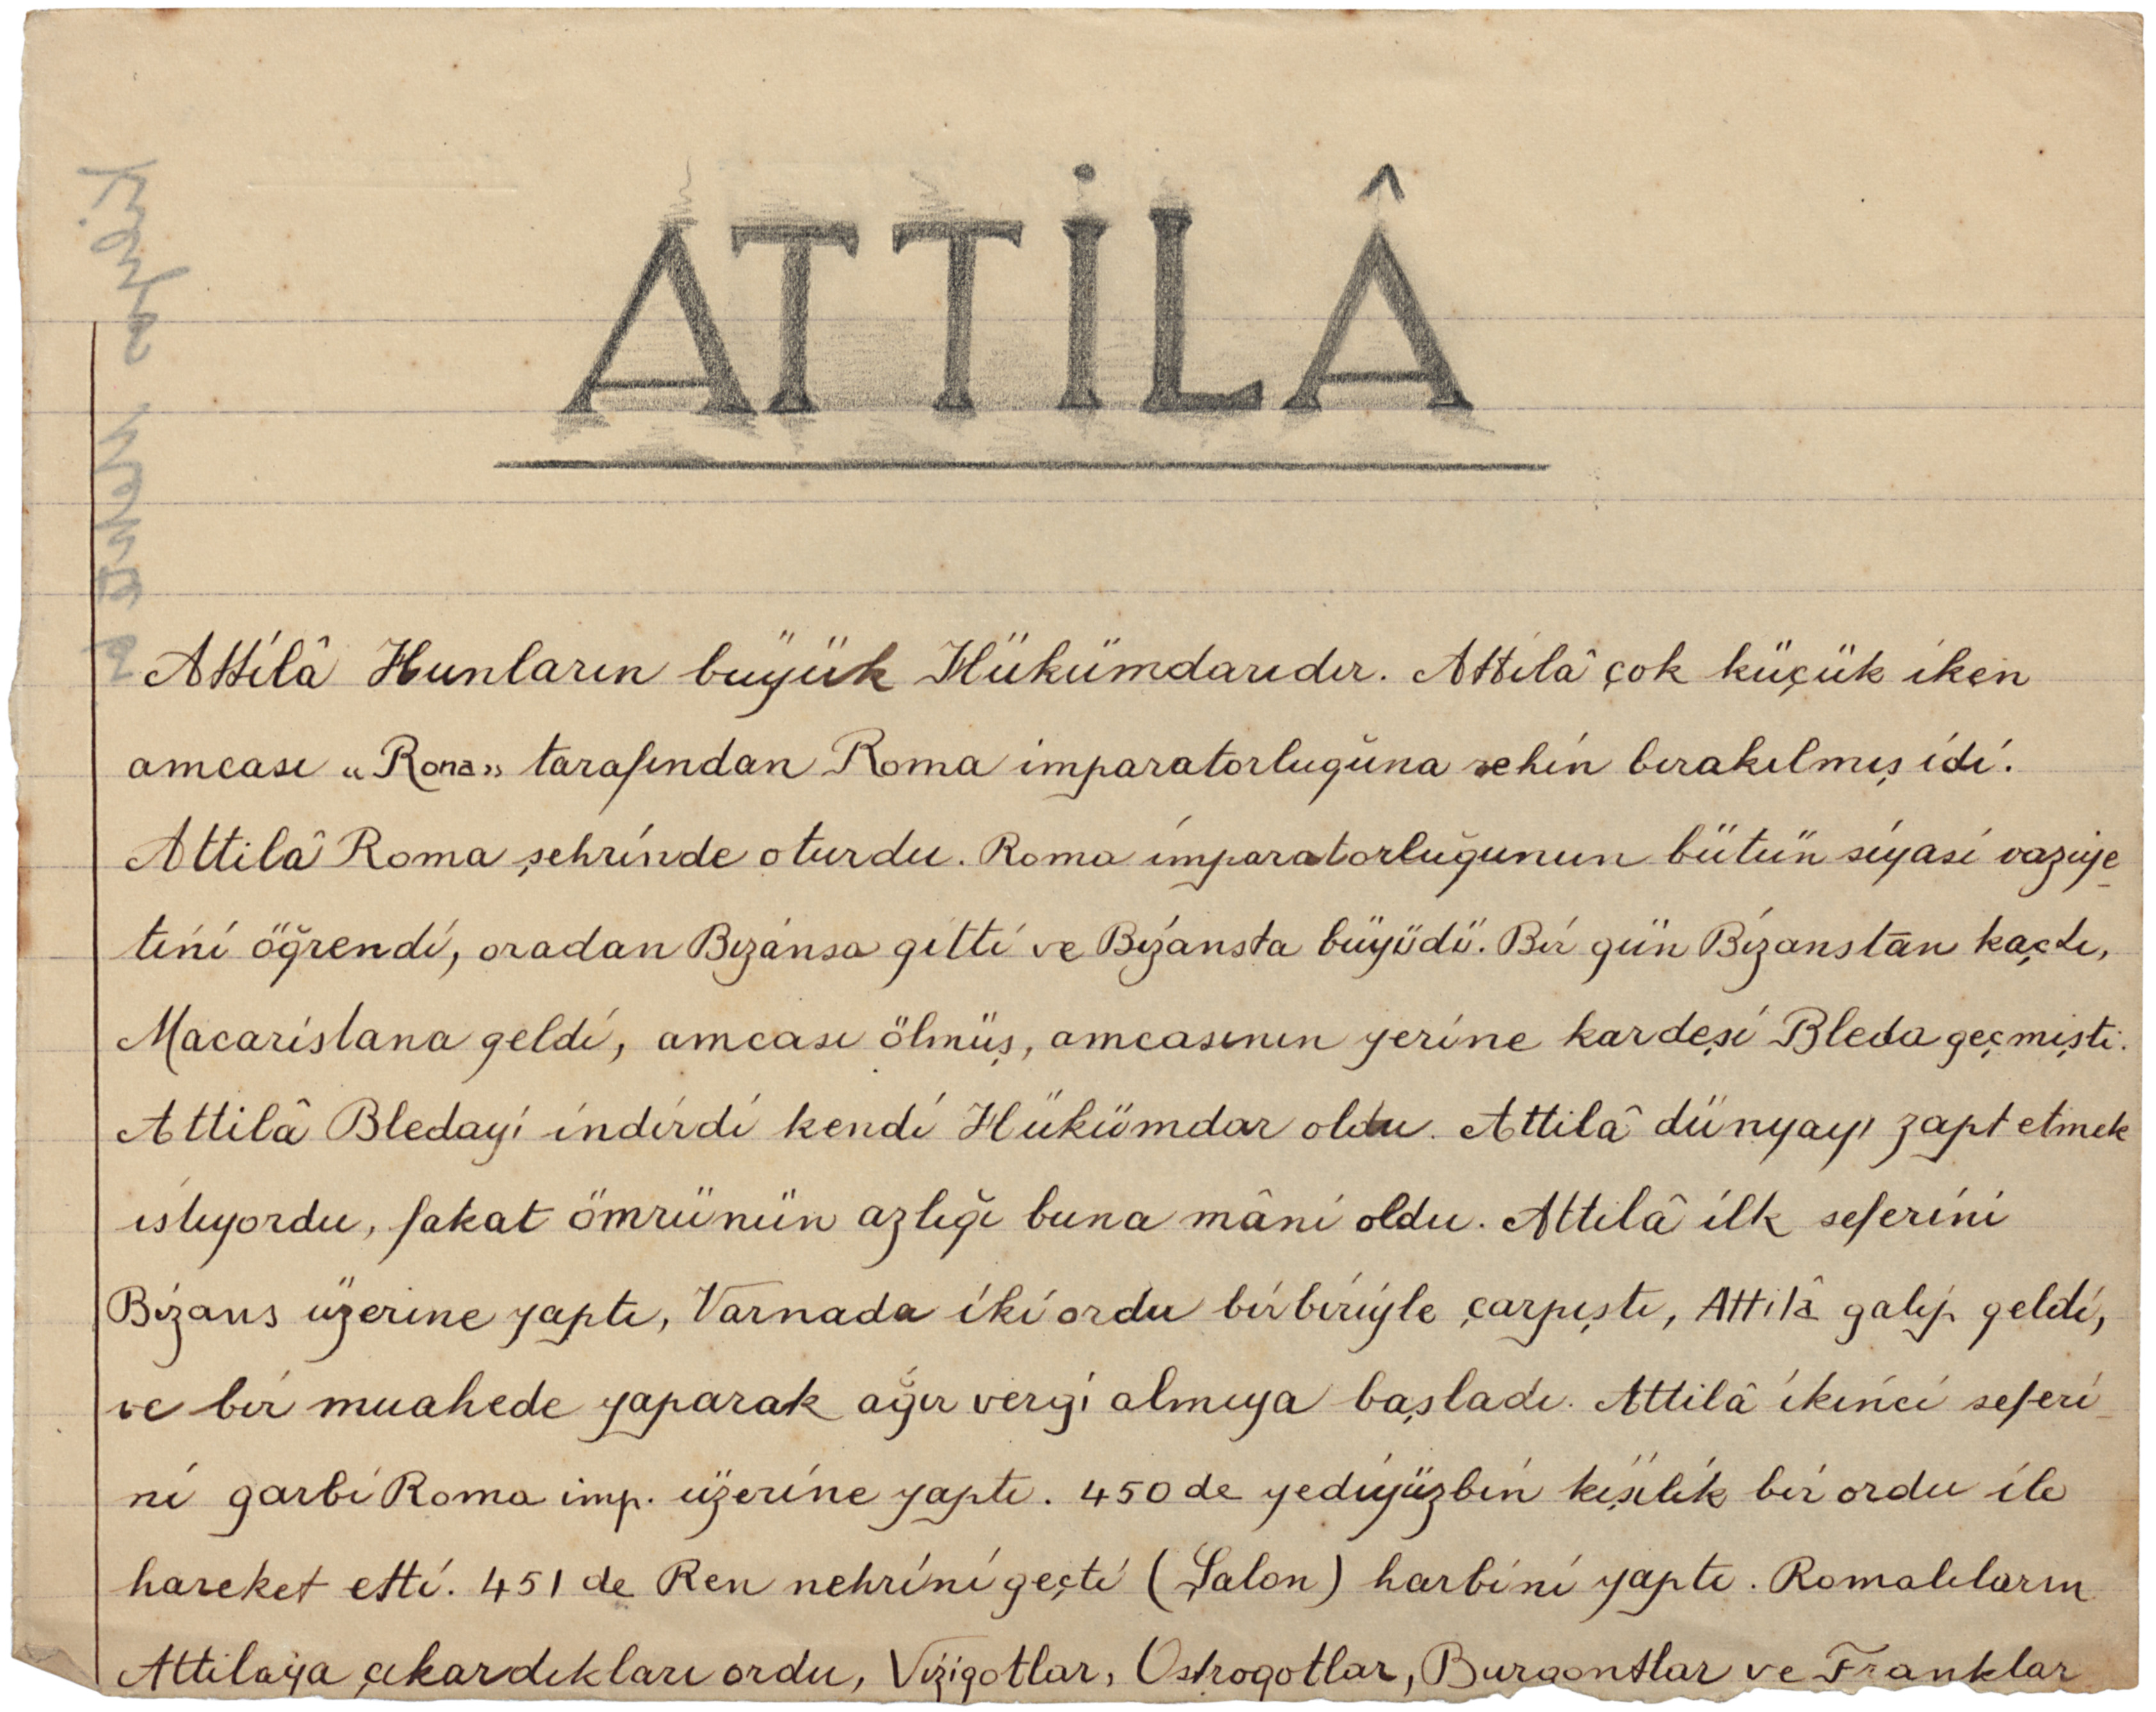 ATTİLÂ
Attilâ Hunların büyük Hükümdarıdır. Attilâ çok küçük iken
amcası «Rona» tarafından Roma imparatorluğuna rehin bırakılmış idi.
Attilâ Roma şehrinde oturdu. Roma imparatorluğunun bütün siyasi vaziye_
tini öğrendi, oradan Bizansa gitti ve Bizansta büyüdü. Bir gün Bizanstan kaçtı,
Macaristana geldi, amcası ölmüş, amcasının yerine kardeşi Bleda geçmişti.
Attilâ Bledayi indirdi kendi Hükümdar oldu. Attilâ dünyayı zapt etmek
istiyordu, fakat ömrünün azlığı buna mâni oldu. Attilâ ilk seferini
Bizans üzerine yaptı, Varnada iki ordu birbiriyle çarpıştı, Attilâ galip geldi,
ve bir muahede yaparak ağır vergi almıya başladı. Attilâ ikinci seferi_
ni garbi Roma imp. üzerine yaptı. 450 de yediyüzbin kişilik bir ordu ile
hareket etti. 451 de Ren nehrini geçti (Şalon) harbini yaptı. Romalıların
Attilaya çıkardıkları ordu, Vizigotlar, Ostrogotlar, Burgontlar ve Franklar